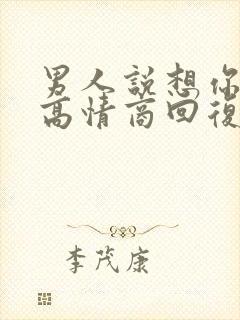 男人說想你
高情商回復
李茂康